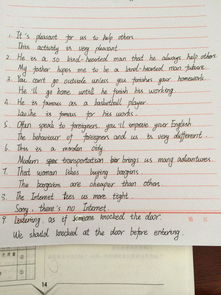 1. It's pleasant for us to help others.
This activity is very pleasant.
2. He is a so kind-hearted man that he always help others.
My father hopes me to be a kind-hearted man future.
3. You can't go outside unless you finishes your homework.
He'll go home until he finish his working.
4. He is famous as a basketball player.
is famous for his works.
5. Often speak to foreigners, you'll improve your English.
The behaviour of foreigners and us is very different.
6. This is a modern city.
Modern transportation brings us many adventures.
7. That woman likes buying bargains.
The bargains are cheaper than others.
8. The Internet ties us more tight.
Sorry, there's no Internet.
9. Listening as if someone knocked the door.
We should knocked at the door before entering.
14